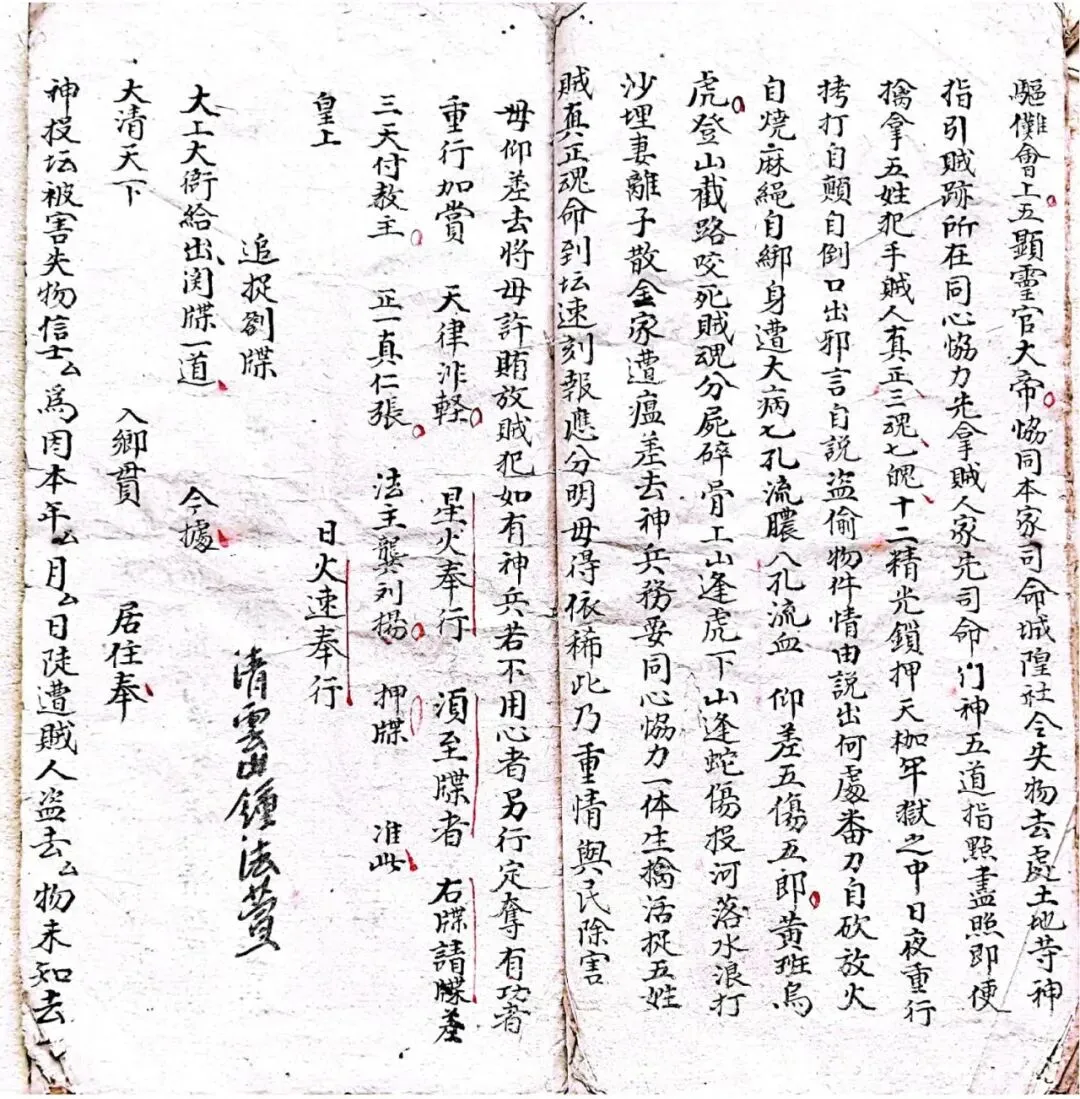 驅儺會上五顯靈官大帝協同本家司命城隍社令失物去處土地等神
指引賊跡所在同心協力先拿賊人家先司命門神五道指點盡照即便
擒拿五姓犯手賊人真正三魂七魄十二精光鎖押天枷牢獄之中日夜重行
拷打自顛自倒口出邪言自説盜偷物件情由説出何處番刀自砍放火
自燒麻繩自綁身遭大病七孔流膿八孔流血 仰差五傷五郎黃班烏
虎登山截路咬死賊魂分屍碎骨上山逢虎下山逢蛇傷投河落水浪打
沙埋妻離子散全家遭瘟差去神兵務要同心協力一体生擒活捉五姓
賊真正魂命到坛速刻報應分明毋得依稀此乃重情與民除害
毋仰差去將毋許賄放賊犯如有神兵若不用心者另行定奪有功者
重行加賞 天律非軽 星火奉行 須至牒者 右牒請牒差
三天付教主 正一真仁張 法王龔列揚 押牒 准此
皇上 日火速奉行
清雲山鍾法萱
追捉劄牒
大上大衙給出関牒一道 今據
大清天下 入鄉貫 居住奉
神投坛被害失物信士厶為因本年厶月厶日陡遭賊人盜去厶物未知去